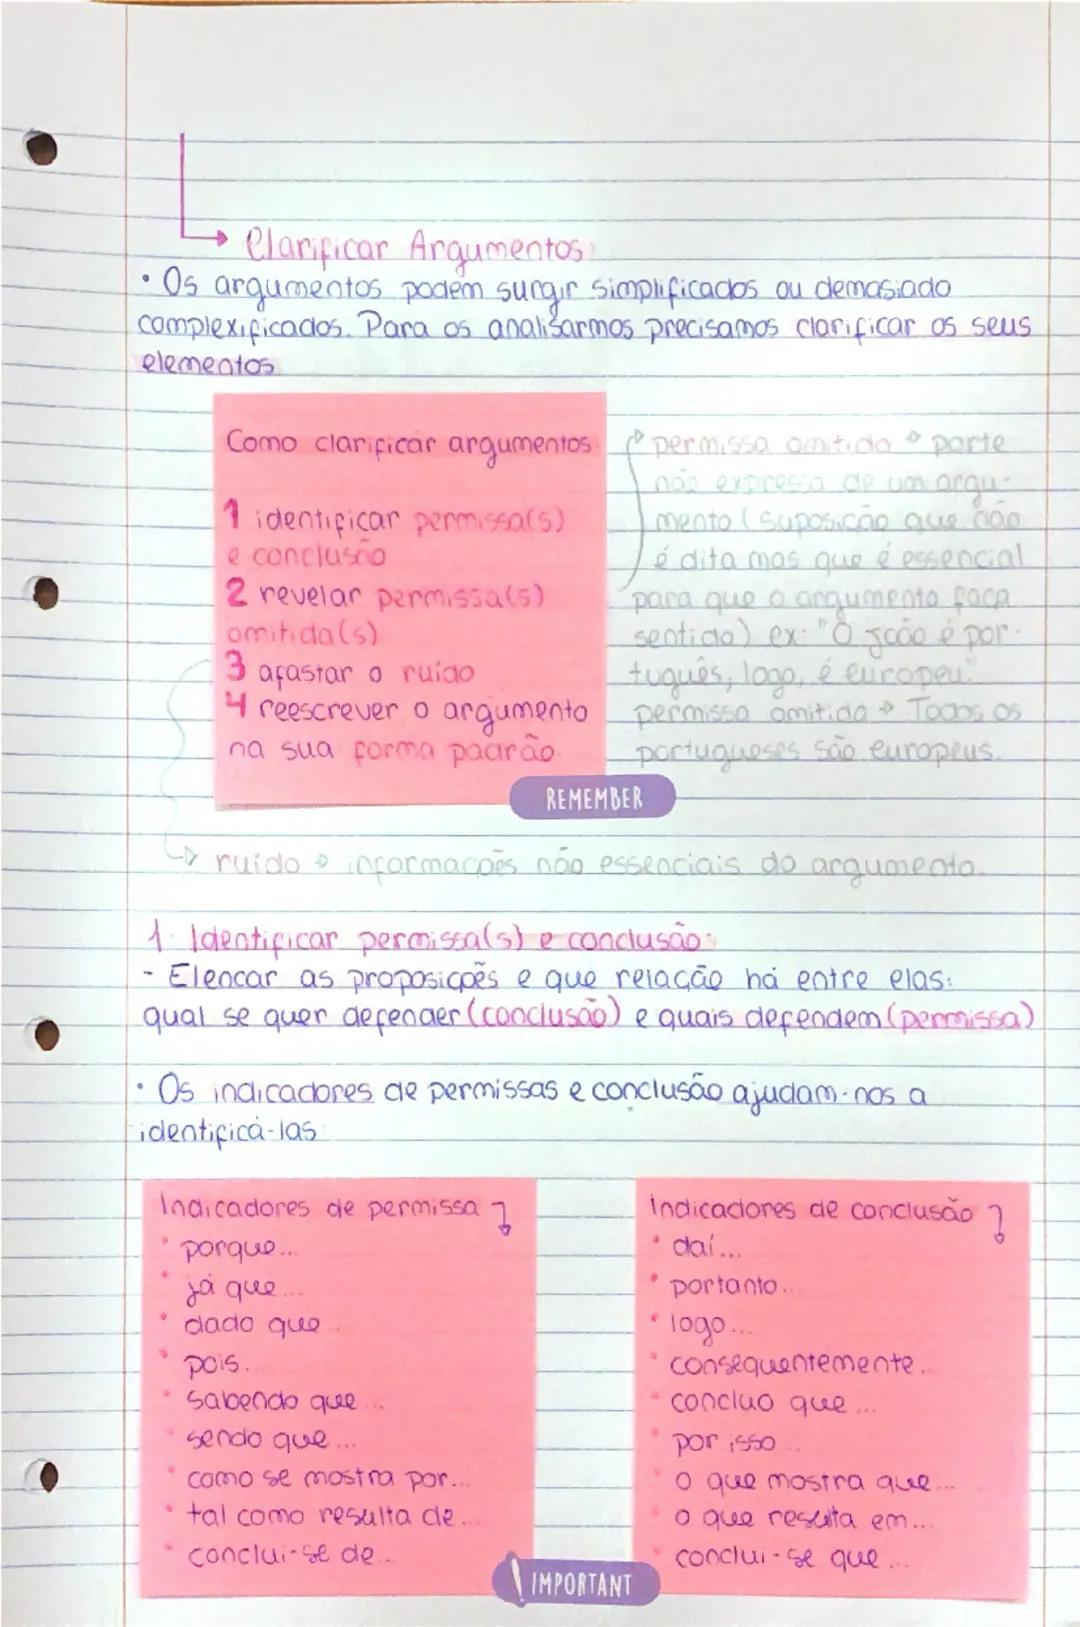 Clarificar Argumentos:
• Os argumentos podem surgir simplificados ou demasiado
complexificados. Para os analisarmos precisamos clarificar os seus
elementos
Como clarificar argumentos:
1 identificar permissa(s)
e conclusão
2 revelar permissa(s)
omitida(s)
3 afastar o ruído
4 reescrever o argumento
na sua forma padrão.
REMEMBER
permissa omitida → parte
não expressa de um argu-
mento (suposição que não
é dita mas que é essencial
para que o argumento faça
sentido) ex: "O João é por-
tuguês, logo, é europeu."
permissa omitida → Todos os
portugueses são europeus.
ruído → informações não essenciais do argumento.
1. Identificar permissa(s) e conclusão:
- Elencar as proposições e que relação há entre elas:
qual se quer defender (conclusão) e quais defendem (permissa)
• Os indicadores de permissas e conclusão ajudam-nos a
identificá-las:
Indicadores de permissa
• porque...
• já que...
• dado que...
• pois...
• sabendo que...
• sendo que...
• como se mostra por...
• tal como resulta de...
• conclui-se de...
Indicadores de conclusão
• daí...
• portanto...
• logo...
• consequentemente...
• concluo que...
• por isso...
• o que mostra que...
• o que resulta em...
• conclui-se que...
! IMPORTANT